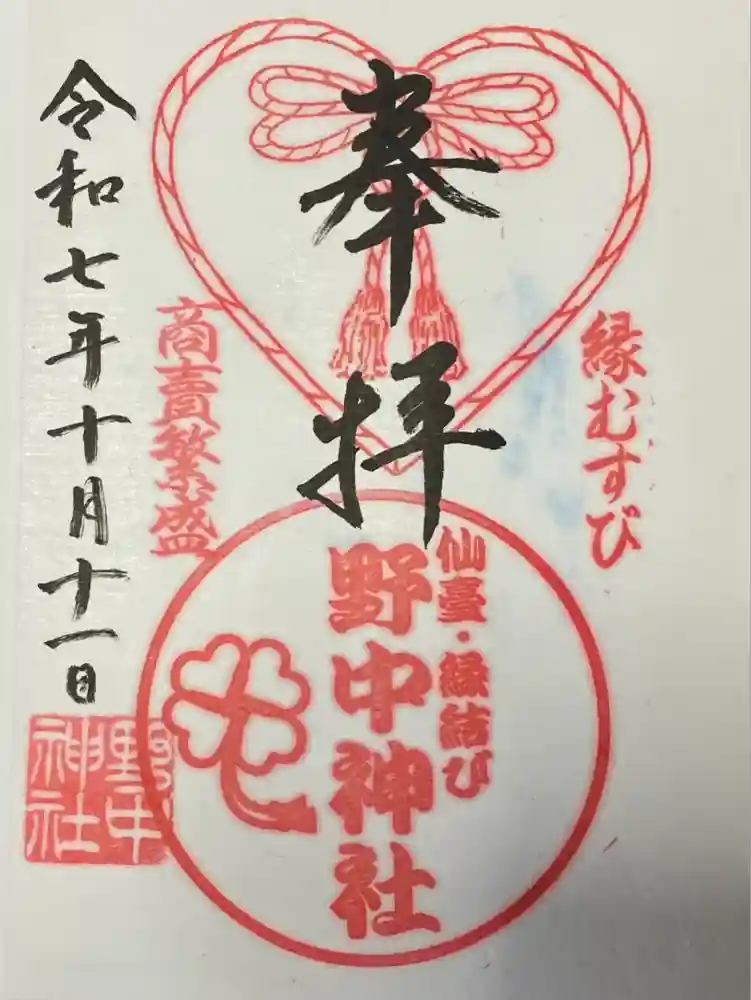 奉拝
縁むすび
商賣繁盛
仙臺・縁結び
野中神社
令和七年十月十一日
野中神社